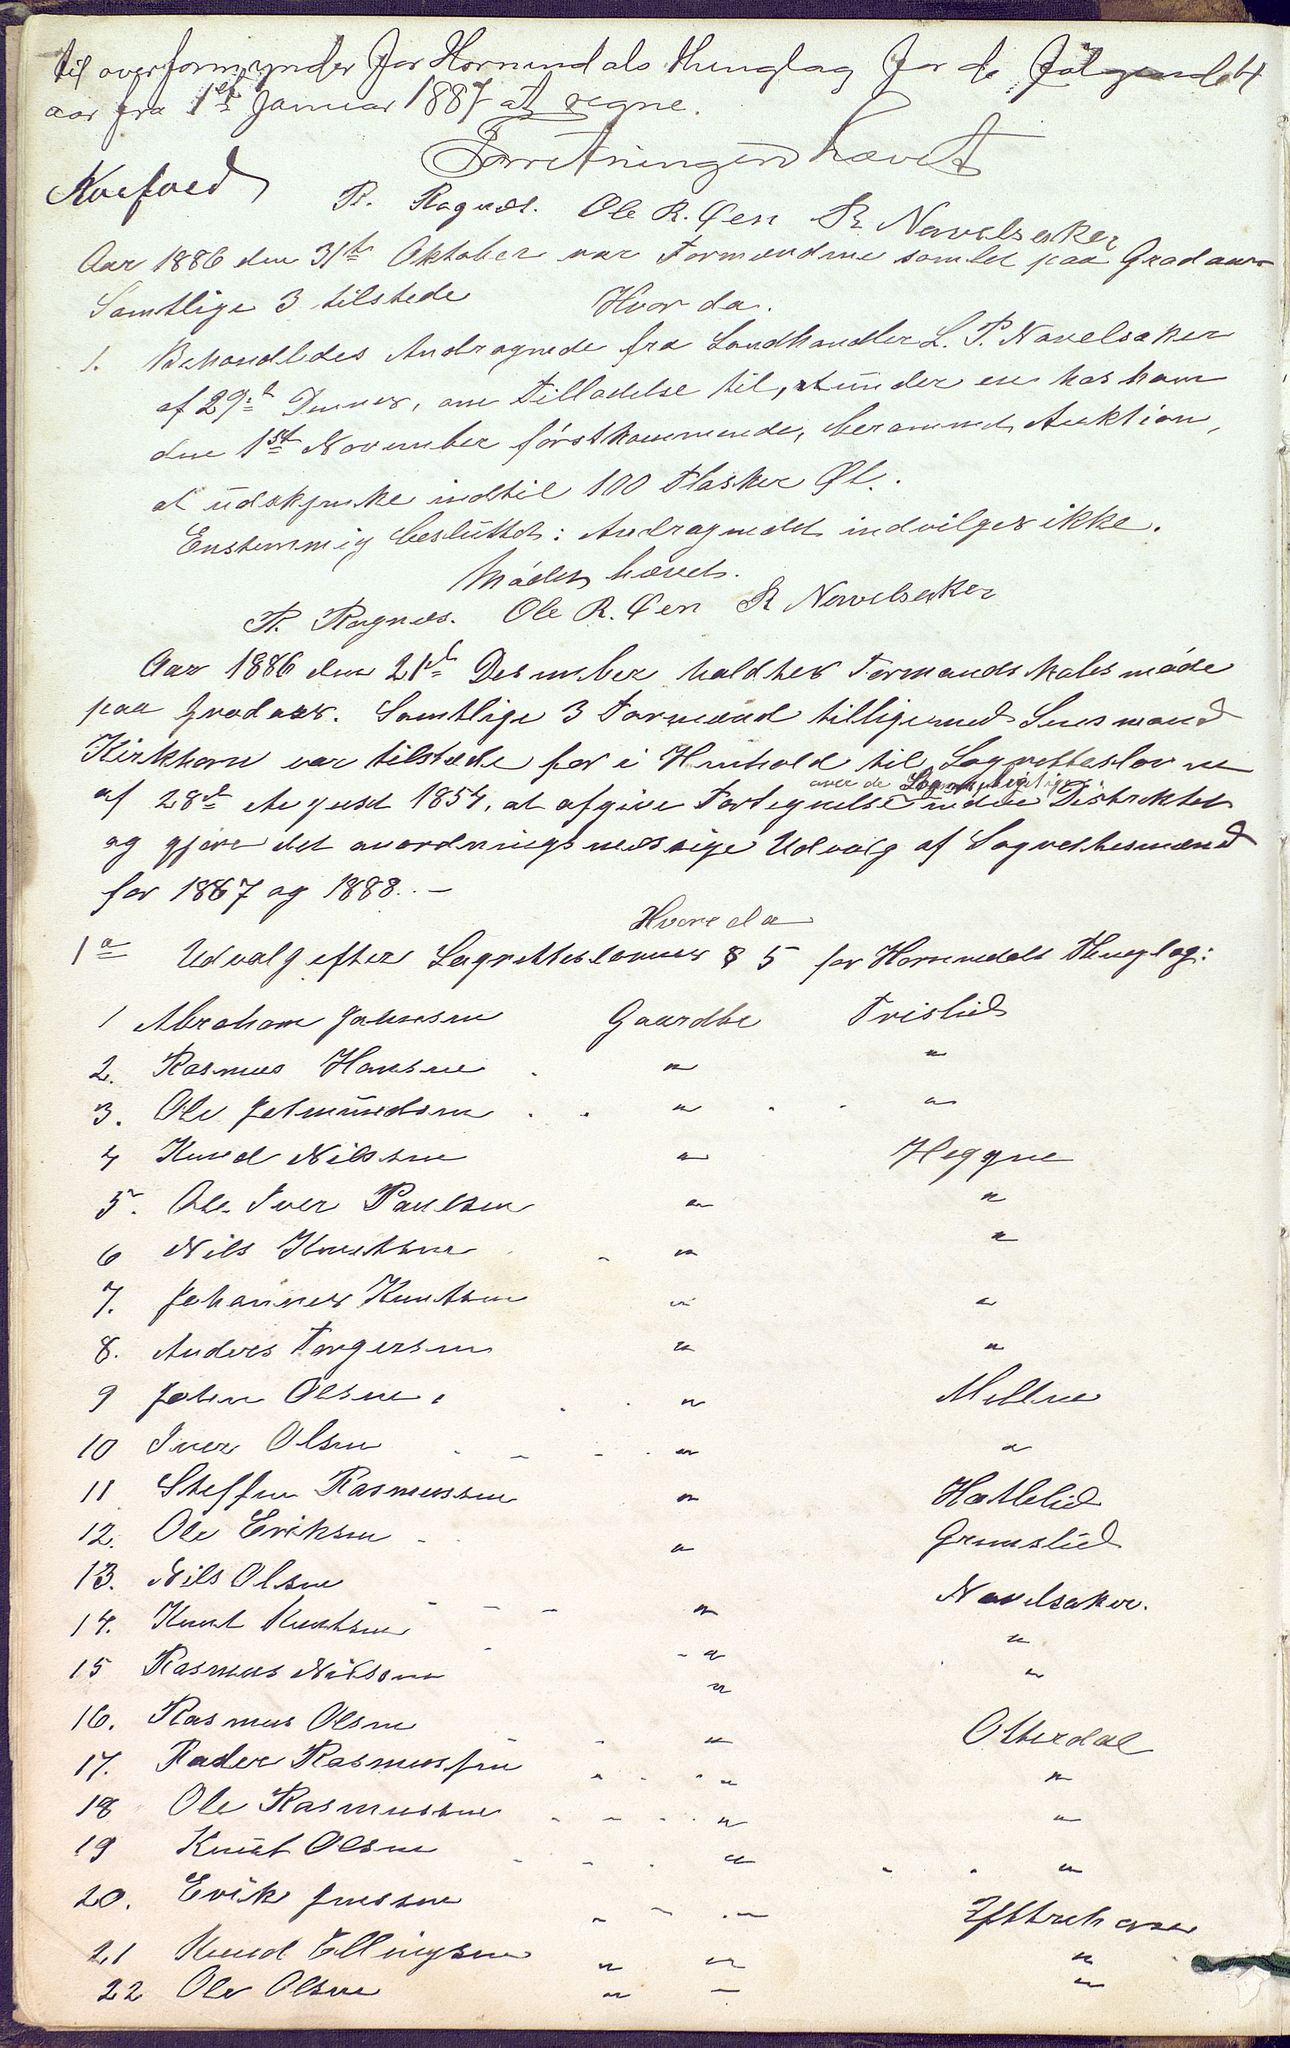 til overformynder for Hornindals thinglag for de følgende 4
aar fra 1st Januar 1887 at regne.
Forretningen hævet
Koefoed
R. Ragnes. Ole R. Øen R Navelsaker
Aar 1886 den 31te Oktober var Formændene samlet paa Gradaas
Samtlige 3 tilstede Hvor da.
1. Behandledes Andragende fra Landhandler L. P. Navelsaker
af 29de Dennes, om Tilladelse til, under en hos ham
den 1st November førstkommende, berammet Auktion,
at udskjenke indtil 100 Flasker Øl.
Enstemmig besluttet: Andragendet indvilges ikke.
Mødet hævet.
R. Ragnes. Ole R. Øen R Navelsaker
Aar 1886 den 21de Desember holdtes Formandskabsmøde
paa Gradaas. Samtlige 3 Formænd tilligemed Lensmand
Kirkhorn var tilstede for i Henhold til Lagrettesloven
over de Lagretpligtige
af 28de August 1854, at afgive Fortegnelse inden Distriktet
og gjøre det anordningsmæssige Udvalg af Lagrettesmænd
for 1887 og 1888. –
Hvorda
1a Udvalg efter Lagretteslovens § 5 for Hornindals Thinglag:
1 Abraham Johnsen Gaardbr Tvislid
2. Rasmus Hansen " "
3. Ole Jetmundsen " "
4 Knud Nilssen " Heggen
5. Ole Iver Paulsen " "
6 Nils Knutsen " "
7. Johannes Knutsen " "
8. Anders Torgersen " "
9 Johan Olsen " Muldne
10 Iver Olsen " "
11 Steffen Rasmussen " Hatlelid
12. Ole Eriksen " Grimslid
13. Nils Olsen Navelsaker.
14. Knut Knutsen " "
15 Rasmus Nilsen " "
"
16. Rasmus Olsen " Otterdal
17. Peder Rasmussen " "
18 Ole Rasmussen " "
19 Knut Olsen " "
20. Erik Jenssen " –
21 Knud Ellingsen " " "
22 Ole Olsen " – "